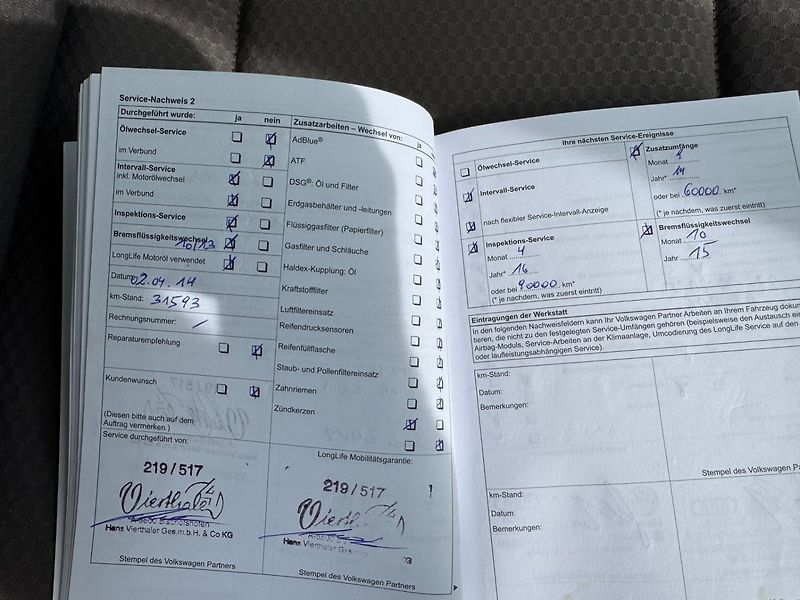 Service-Nachweis 2
Durchgeführt wurde: ja nein
Ölwechsel-Service
im Verbund
Intervall-Service
inkl. Motorölwechsel
im Verbund
Inspektions-Service
Bremsflüssigkeitswechsel
10/13
LongLife Motoröl verwendet
Datum: 02.04.14
km-Stand: 31593
Rechnungsnummer:
Reparaturempfehlung
Kundenwunsch
(Diesen bitte auch auf dem
Auftrag vermerken.)
Service durchgeführt von:
219/517
Vierthaler
A-5500 Bischofshofen
Hans Vierthaler Ges.m.b.H. & Co KG
Stempel des Volkswagen Partners
Zusatzarbeiten – Wechsel von: ja
AdBlue®
ATF
DSG®: Öl und Filter
Erdgasbehälter und -leitungen
Flüssiggasfilter (Papierfilter)
Gasfilter und Schläuche
Haldex-Kupplung: Öl
Kraftstofffilter
Luftfiltereinsatz
Reifendrucksensoren
Reifenfüllflasche
Staub- und Pollenfiltereinsatz
Zahnriemen
Zündkerzen
LongLife Mobilitätsgarantie:
219/517
Vierthaler
Hans Vierthaler Ges.m.
Stempel des Volkswagen Partners
Ihre nächsten Service-Ereignisse
Ölwechsel-Service
Intervall-Service
nach flexibler Service-Intervall-Anzeige
Inspektions-Service
Monat 4
Jahr* 16
oder bei 90000 km*
(* je nachdem, was zuerst eintritt)
Zusatzumfänge
Monat
Jahr*
oder bei 60000 km*
(* je nachdem, was zuerst eintritt)
Bremsflüssigkeitswechsel
Monat 10
Jahr 15
Eintragungen der Werkstatt
In den folgenden Nachweisfeldern kann Ihr Volkswagen Partner Arbeiten an Ihrem Fahrzeug doku
tieren, die nicht zu den festgelegten Service-Umfängen gehören (beispielsweise den Austausch ei
Airbag-Moduls, Service-Arbeiten an der Klimaanlage, Umcodierung des LongLife Service auf den
oder laufleistungsabhängigen Service).
km-Stand:
Datum:
Bemerkungen:
Stempel des Volkswagen Partn
km-Stand:
Datum:
Bemerkungen:
Stempel des Volkswagen Par